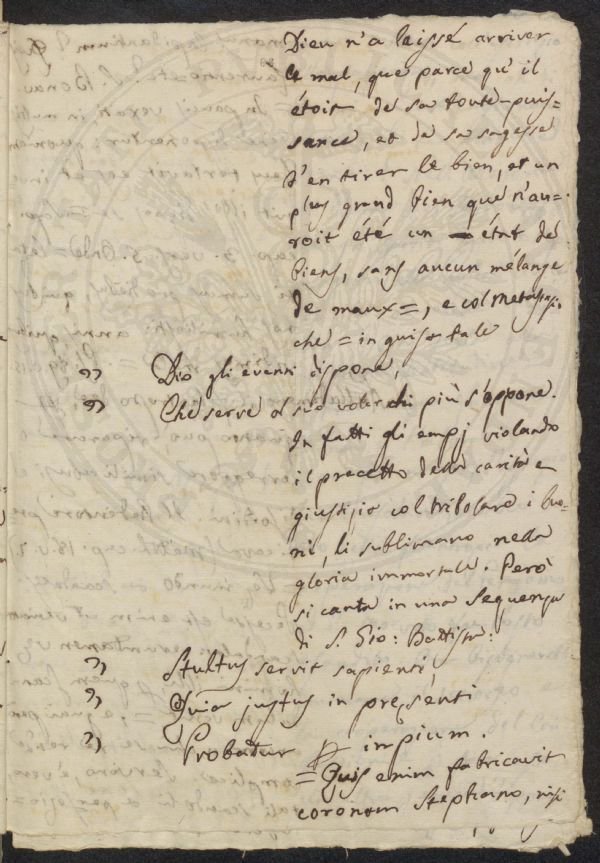 Dieu n'a laissé arriver
le mal, que parce qu'il
étoit de sa toute-puis=
sance, et de sa sagesse
d'en tirer le bien, et un
plus grand bien que n'au=
roit été un état de
biens, sans aucun mélange
de maux=, e col Metastasi
che = in guisa tale
" Dio gli eventi dispone,
" Che serve al suo voler chi più s'oppone.
In fatti gli empj violando
il precetto della carità e
giustizia col tribolare i buo=
ni, li sublimano nella
gloria immortale. Però
si canta in una Sequenza
di S. Gio: Battista:
" Stultus servit sapienti,
" Quia justus in presenti
" Probatur impium.
= Quis enim fabricavit
coronam Stephano, nisi